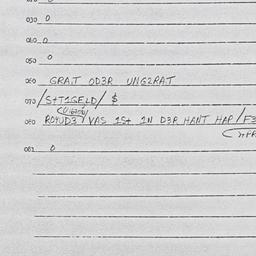 030 0
040 0
050 0
060 GRAT OD3R UNG2RAT
070 /S+T1GELD/ $
080 ROYUD3 / VAS 1S+ 1N D3R HANT HAP /F3
081 0